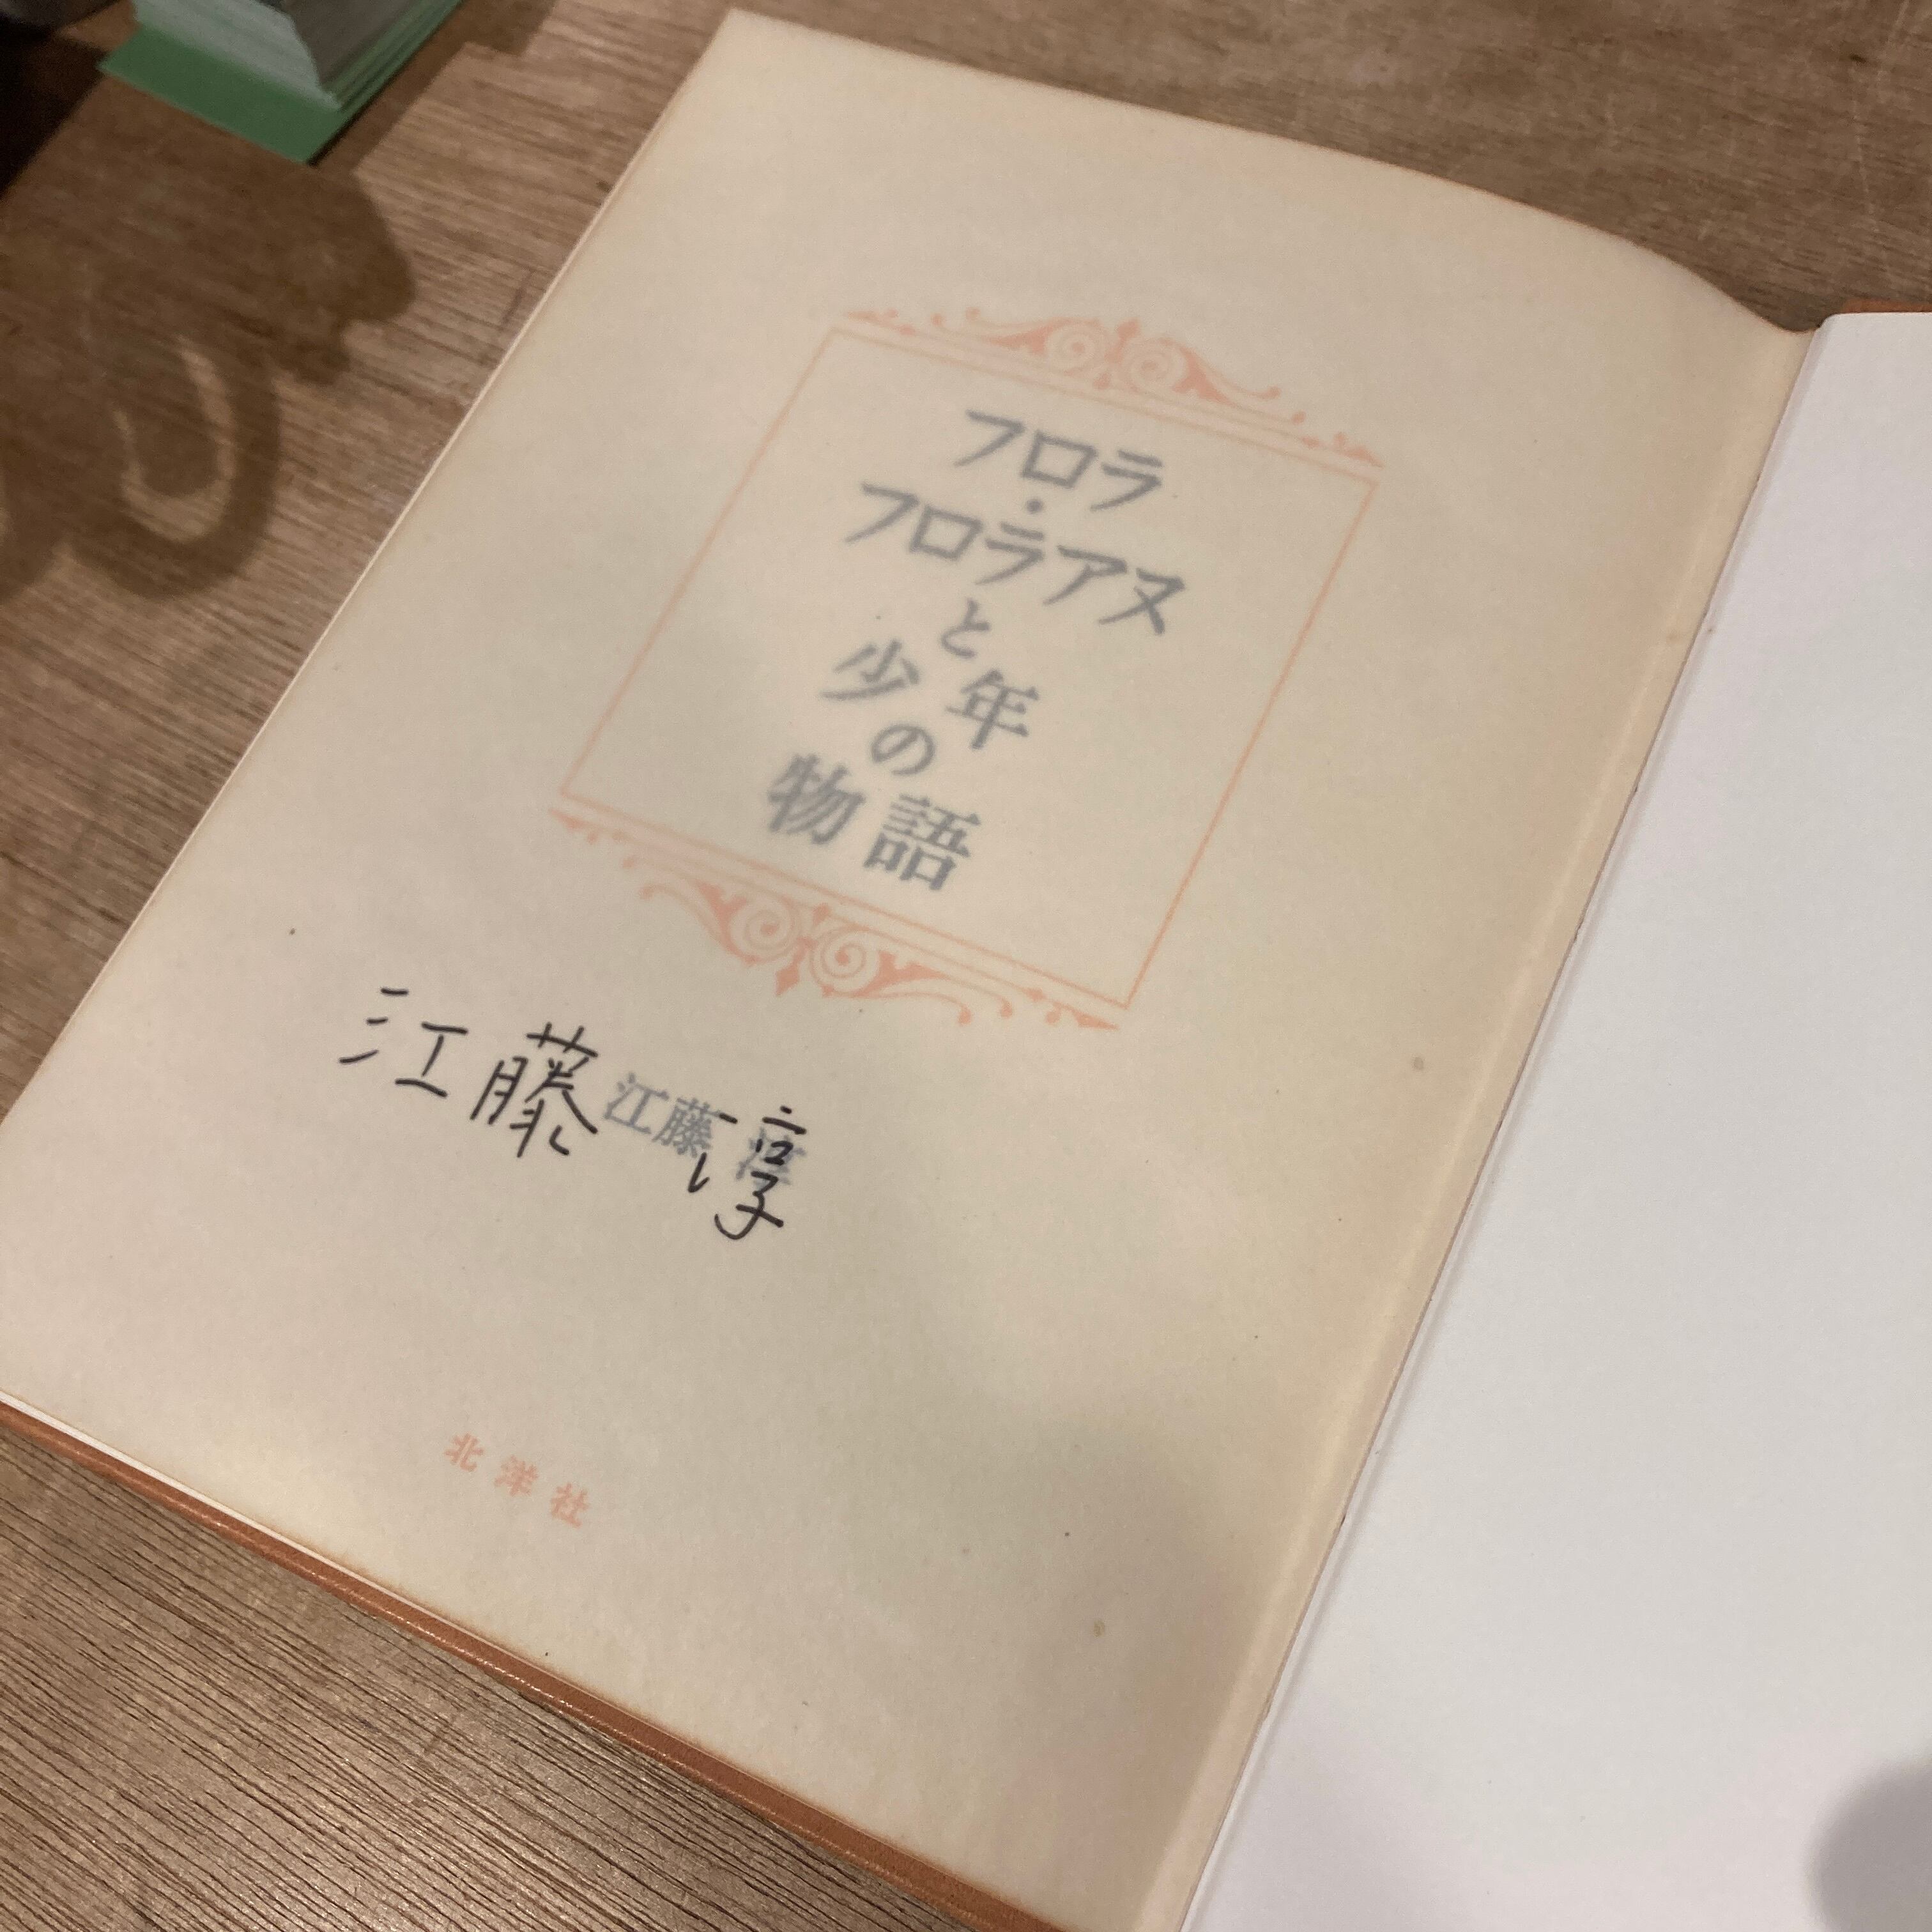 フロラ
・
フロラアヌ
と
少年
の
物語
江藤淳
江藤 淳
北洋社